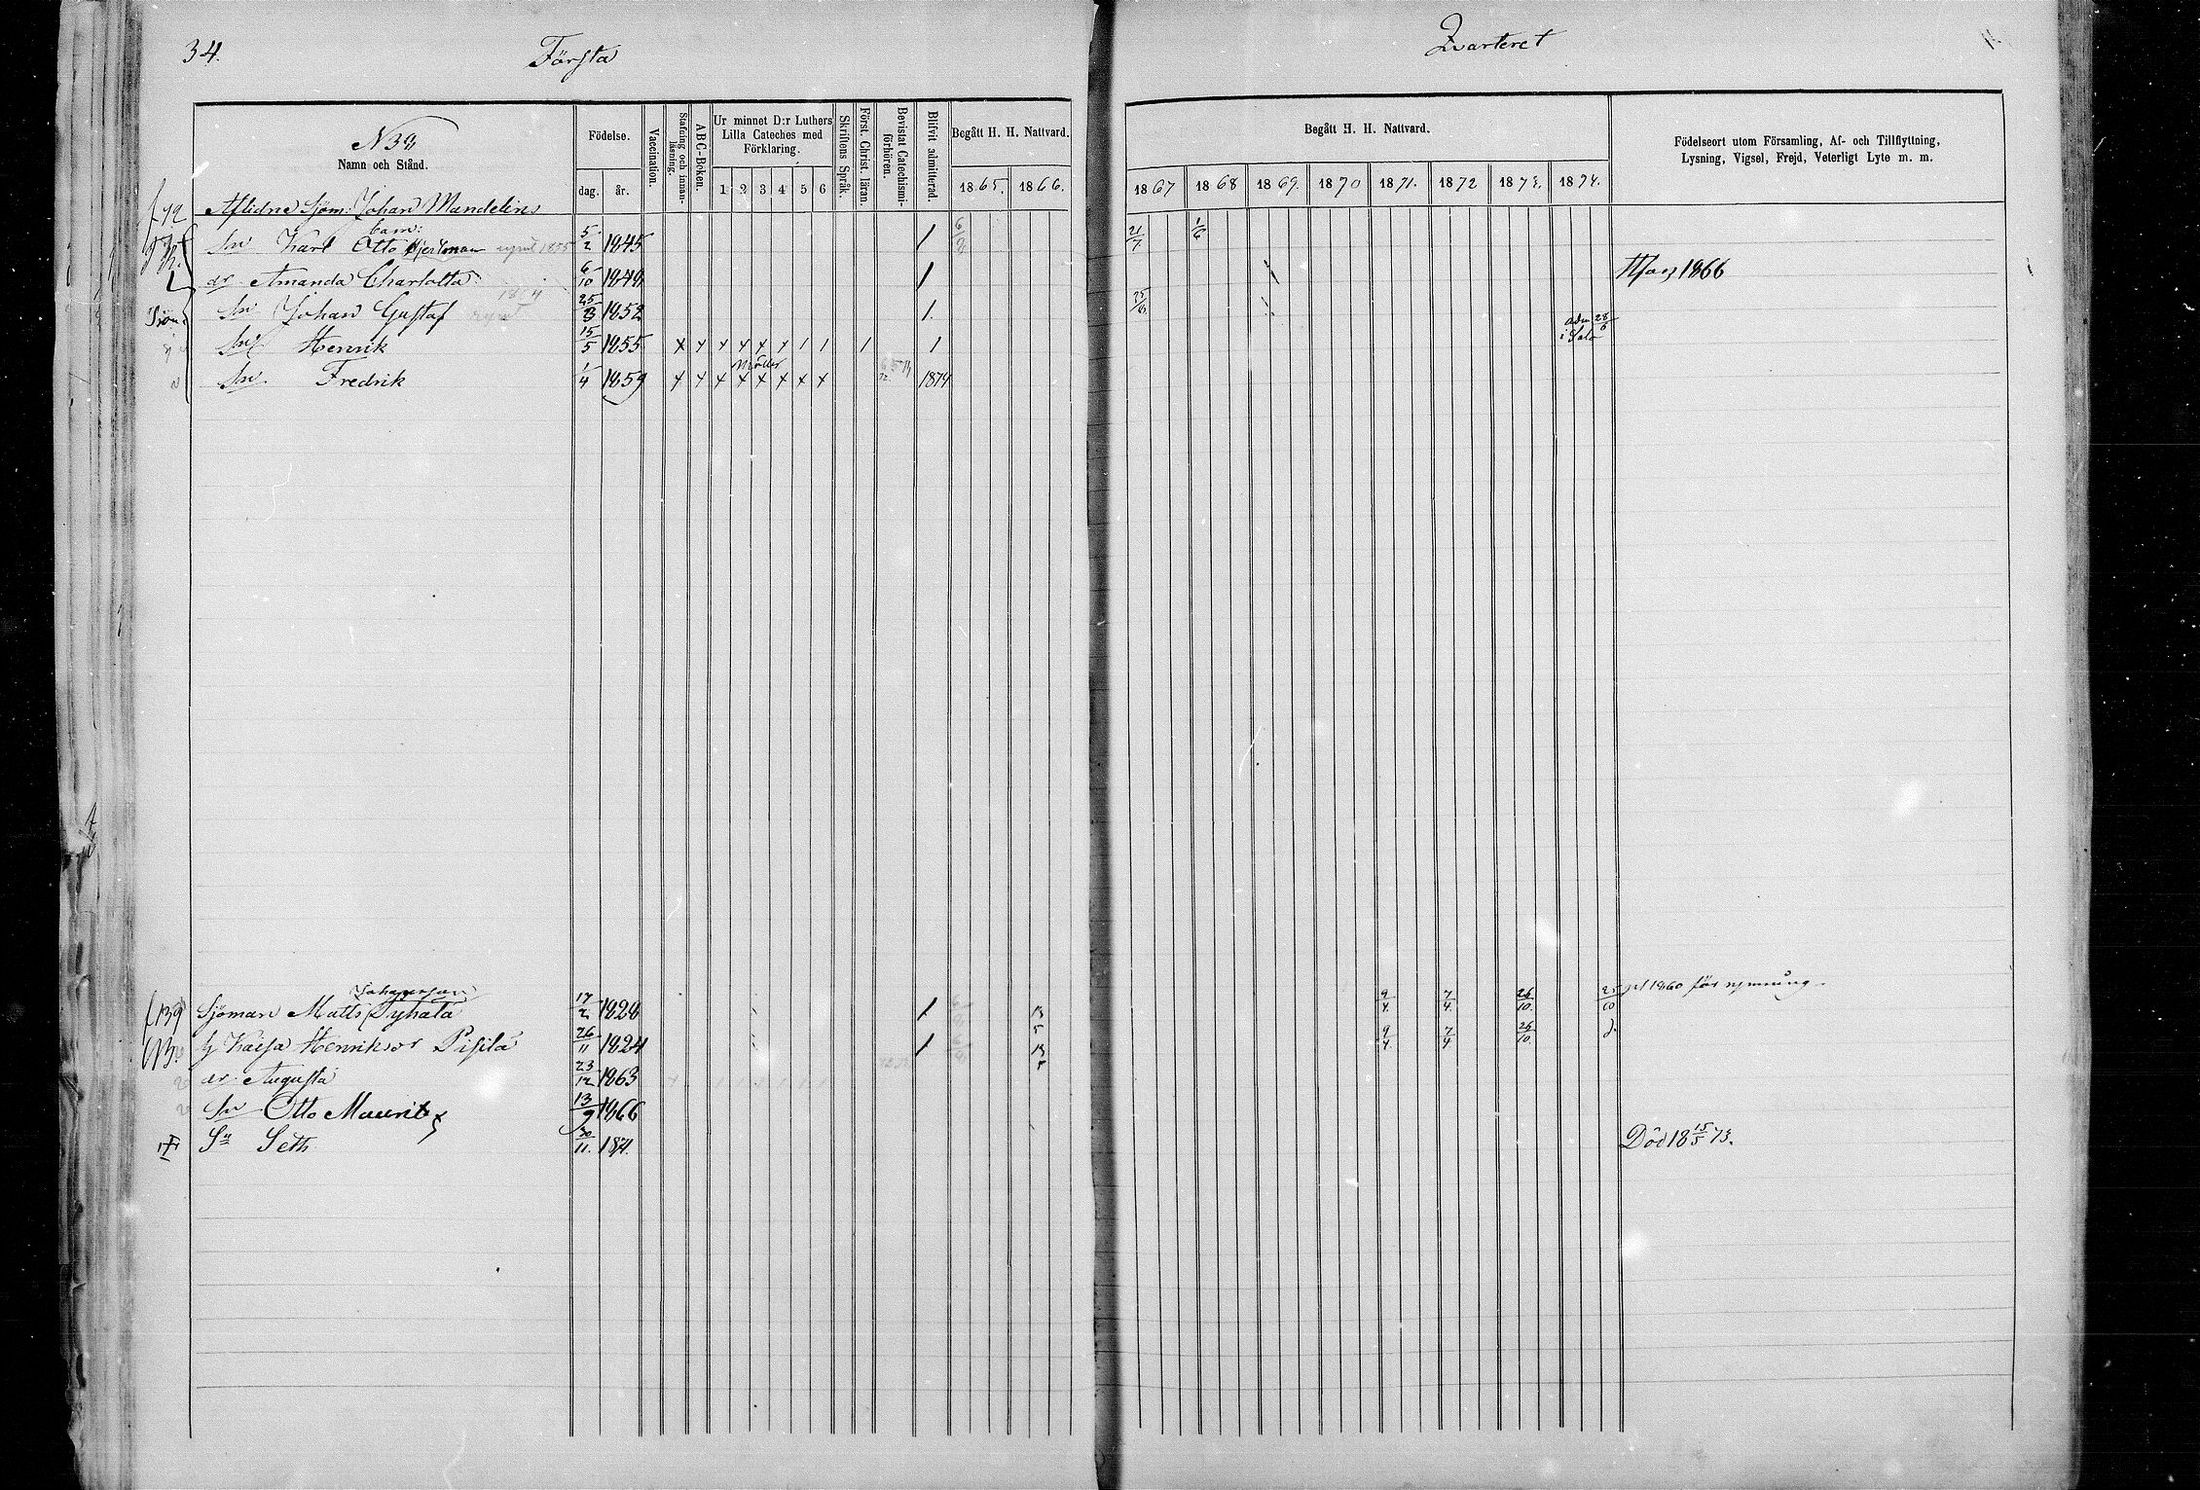 34.
Första
Qvarteret
N 38
Namn och Stånd.
Födelse.
dag. år.
Vaccination.
Stafning och innan-läsning.
ABC-Boken.
Ur minnet D:r Luthers Lilla Cateches med Förklaring.
1 2 3 4 5 6
Skriftens Språk.
Först. Christ. läran.
Bevistat Catechismi-förhören.
Blifvit admitterad.
Begått H. H. Nattvard.
1865. 1866.
Begått H. H. Nattvard.
1867 1868 1869. 1870 1871. 1872 1873. 1874.
Födelseort utom Församling, Af- och Tillflyttning,
Lysning, Vigsel, Frejd, Veterligt Lyte m. m.
Aflidne Sjöm: Johan Mandelins
barn:
Sn Karl Otto Hjertman 5/2 1845 / 6/8 21/7 1/6
dr Amanda Charlotta 6/10 1848 / 1866
Sn Johan Gustaf 25/3 1852 1. 25/6
adm 28/6
Sn Henrik 15/5 1855 x x x x x x 1 1 1 1 i Salo
Sn Fredrik 1/4 1859 x x x x x x x x 1874
Johansson
Sjöman Matts Pyhälä 17/2 1828 / 13/5 9/4. 7/4. 26/10. 25/10 1860 för rymning.
h Kaisa Henriksdr Pisilä 26/11 1824 / 13/5 9/4. 7/4 26/10. d:
dr Augusta 23/12 1863
Sn Otto Mauritz 13/9 1866
Sn Seth 30/11. 1871. Död 18 15/5 73.